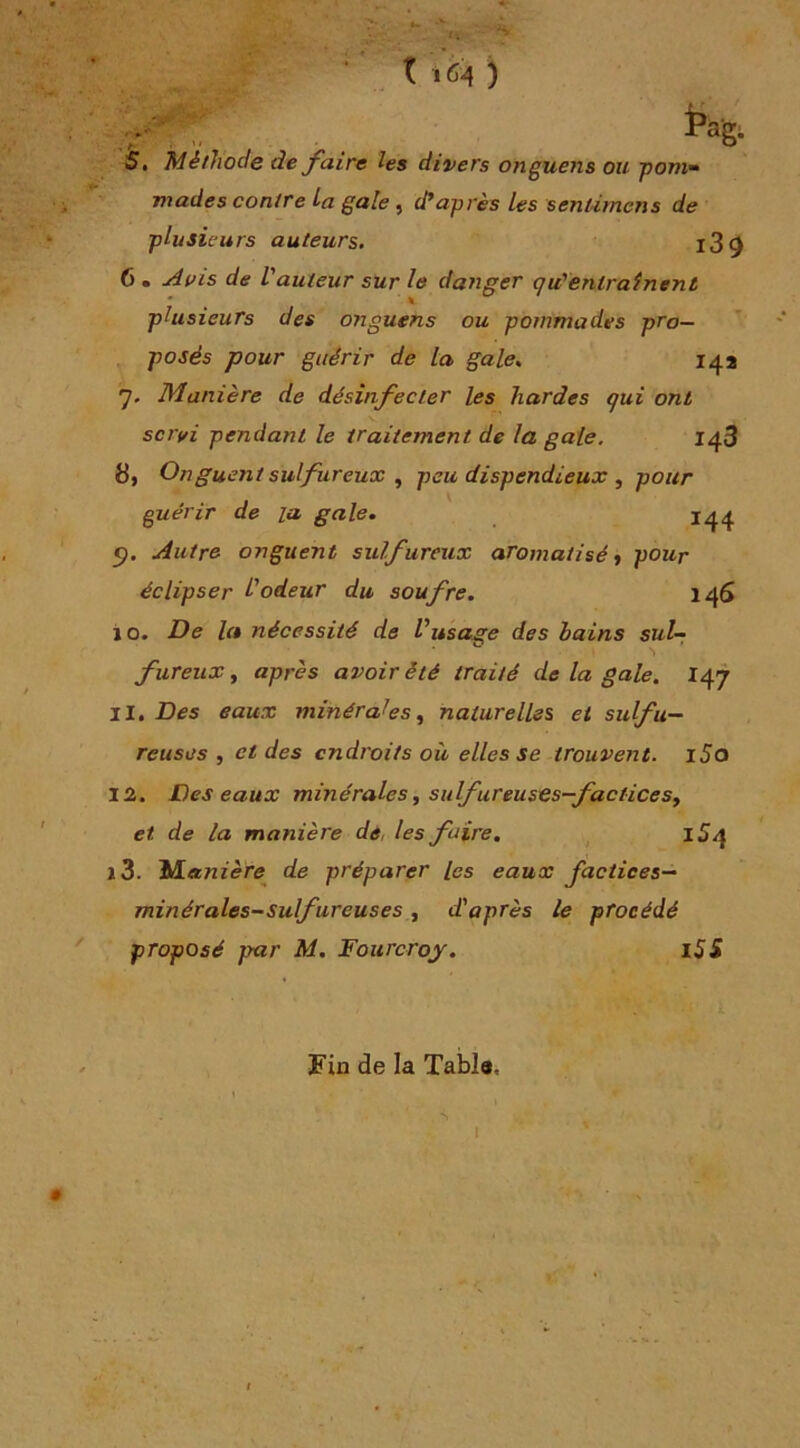 ( 164 )
Pag.
5. Méthode de faire les divers onguens ou pom-
mades contre la gale , d'après les sentimens de
plusieurs auteurs. 139
6 . Avis de l'auteur sur le danger qu'entraînent
plusieurs des onguens ou pommades pro-
posés pour guérir de la gale. 142
7. Manière de désinfecter les hardes qui ont
servi pendant le traitement de la gale. 143
8, Onguent sulfureux , peu dispendieux , pour
guérir de la gale. 144
9. Autre onguent sulfureux aromatisé, pour
éclipser l'odeur du soufre. 146
10. De la nécessité de l'usage des bains sul-
fureux, après avoir été traité de la gale. 147
11. Des eaux minérales, naturelles et sulfu-
reuses , et des endroits où elles se trouvent. 150
12. Des eaux minérales, sulfureuses-factices,
et de la manière de les faire. 154
13. Manière de préparer les eaux factices-
minérales-sulfureuses , d'après le procédé
proposé par M. Fourcroy. 155
Fin de la Table.